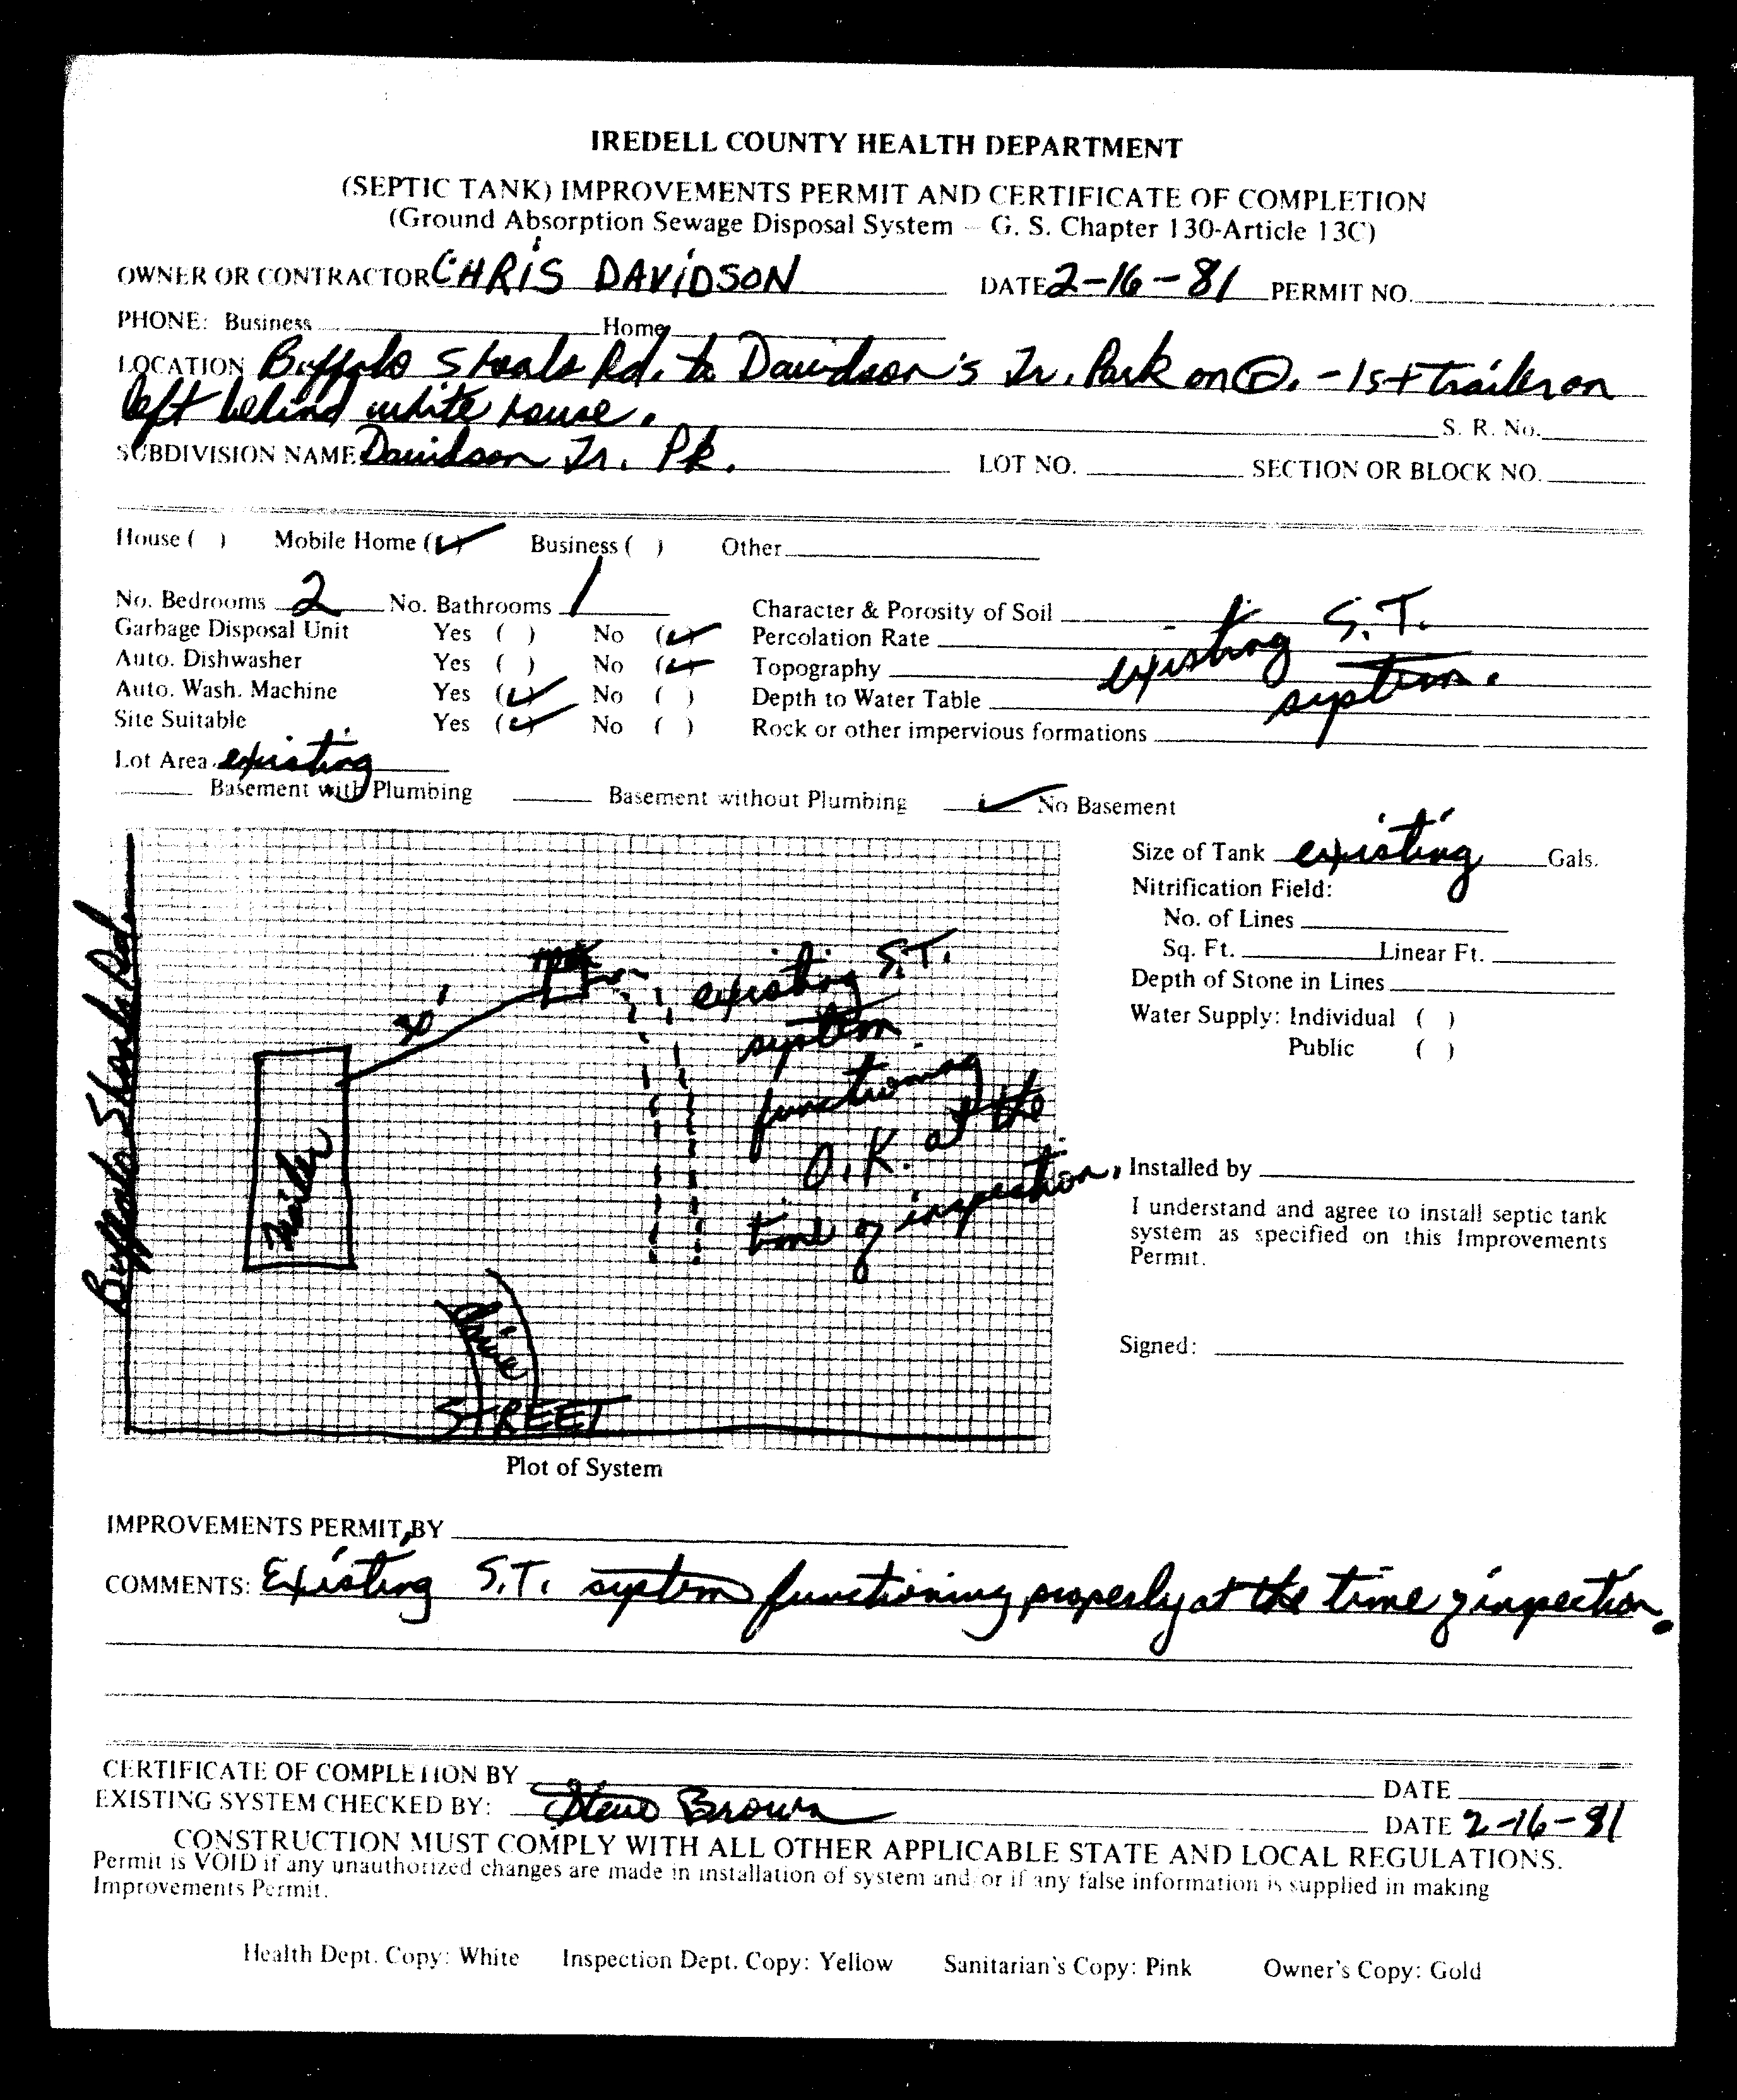 IREDELL COUNTY HEALTH DEPARTMENT
(SEPTIC TANK) IMPROVEMENTS PERMIT AND CERTIFICATE OF COMPLETION
(Ground Absorption Sewage Disposal System – G. S. Chapter 130-Article 13C)
OWNER OR CONTRACTOR CHRIS DAVIDSON DATE 2-16-81 PERMIT NO.
PHONE: Business Home
LOCATION Buffalo Shoals Rd. to Davidson's Tr. Park on R. - 1st trailer on
left behind white house. S. R. No.
SUBDIVISION NAME Davidson Tr. Pk. LOT NO. SECTION OR BLOCK NO.
House ( ) Mobile Home (✓) Business ( ) Other
No. Bedrooms 2 No. Bathrooms 1 Character & Porosity of Soil existing S.T.
Garbage Disposal Unit Yes ( ) No (✓) Percolation Rate system.
Auto. Dishwasher Yes ( ) No (✓) Topography
Auto. Wash. Machine Yes (✓) No ( ) Depth to Water Table
Site Suitable Yes (✓) No ( ) Rock or other impervious formations
Lot Area existing
Basement with Plumbing Basement without Plumbing ✓ No Basement
Size of Tank existing Gals.
Nitrification Field:
No. of Lines
Sq. Ft. Linear Ft.
Depth of Stone in Lines
Water Supply: Individual ( )
Public ( )
Buffalo Shoals Rd.
Trailer
existing S.T.
system
functioning
O.K. at the
time of inspection.
drive
STREET
Installed by
I understand and agree to install septic tank
system as specified on this Improvements
Permit.
Signed:
Plot of System
IMPROVEMENTS PERMIT BY
COMMENTS: Existing S.T. system functioning properly at the time of inspection.
CERTIFICATE OF COMPLETION BY DATE
EXISTING SYSTEM CHECKED BY: Steve Brown DATE 2-16-81
CONSTRUCTION MUST COMPLY WITH ALL OTHER APPLICABLE STATE AND LOCAL REGULATIONS.
Permit is VOID if any unauthorized changes are made in installation of system and/or if any false information is supplied in making
Improvements Permit.
Health Dept. Copy: White Inspection Dept. Copy: Yellow Sanitarian's Copy: Pink Owner's Copy: Gold